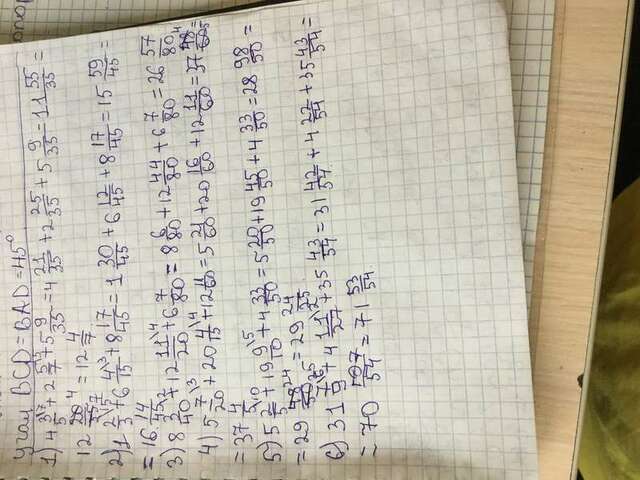 угол BCD=BAD=45°
1) 4 3/5 + 2 5/7 + 5 9/35 = 4 21/35 + 2 25/35 + 5 9/35 = 11 55/35 =
12 20/35 = 12 4/7
2) 1 2/3 + 6 4/15 + 8 17/45 = 1 30/45 + 6 12/45 + 8 17/45 = 15 59/45 =
= 16 14/45
3) 8 3/40 + 12 11/20 + 6 7/80 = 8 6/80 + 12 44/80 + 6 7/80 = 26 57/80
4) 5 7/20 + 20 4/15 + 12 11/60 = 5 21/60 + 20 16/60 + 12 11/60 = 37 48/60 =
= 37 4/5
5) 5 2/5 + 19 9/10 + 4 33/50 = 5 20/50 + 19 45/50 + 4 33/50 = 28 98/50 =
= 29 48/50 = 29 24/25
6) 31 7/9 + 4 11/27 + 35 43/54 = 31 42/54 + 4 22/54 + 35 43/54 =
= 70 107/54 = 71 53/54